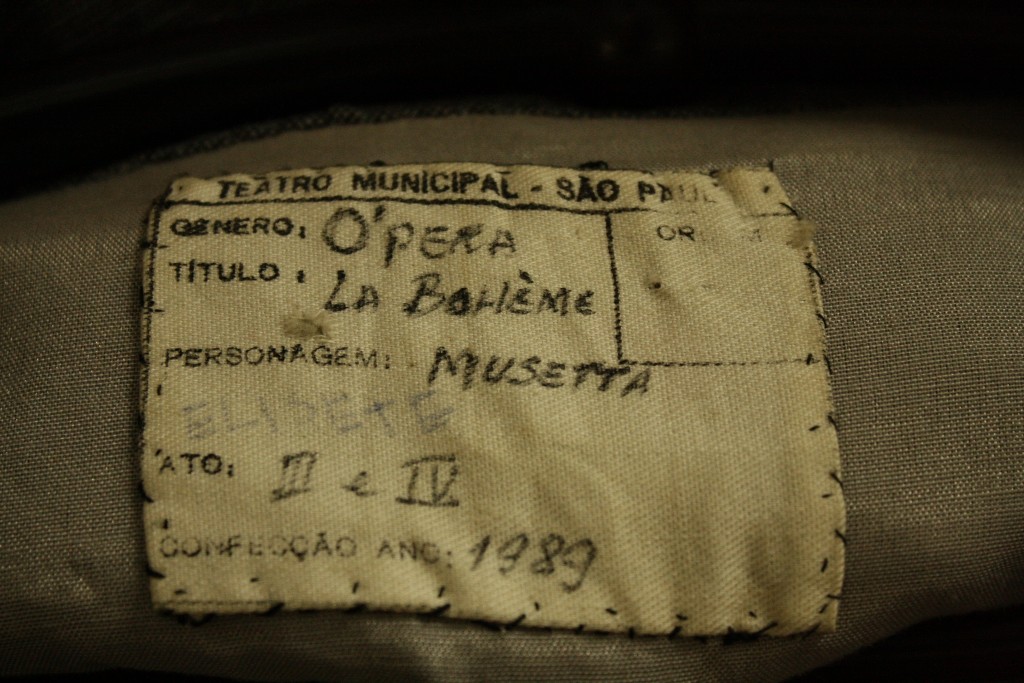 TEATRO MUNICIPAL - SÃO PAUL
GÊNERO: O'PERA
OR EM
TÍTULO: LA BOHÈME
PERSONAGEM: MUSETTA
ELISETE
ATO: III e IV
CONFECÇÃO ANO: 1989